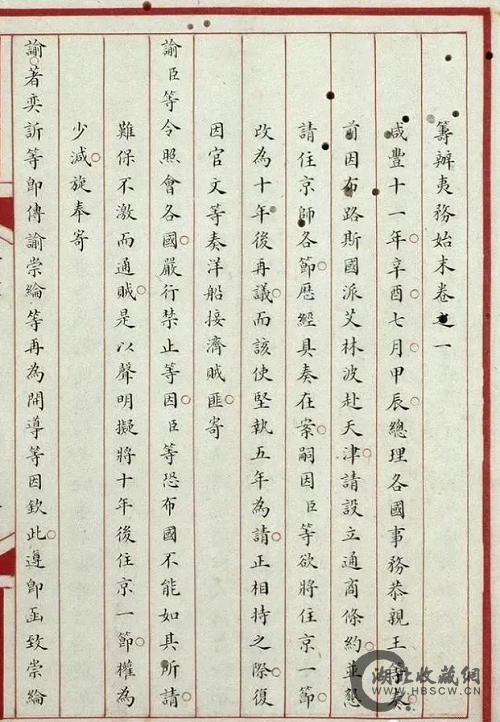 籌辦夷務始末卷之一
咸豐十一年辛酉七月甲辰總理各國事務恭親王等奏
前因布路斯國派艾林波赴天津請設立通商條約並懇
請住京師各節歷經具奏在案嗣因臣等欲將住京一節
改為十年後再議而該使堅執五年為請正相持之際復
因官文等奏洋船接濟賊匪寄
諭臣等令照會各國嚴行禁止等因臣等恐布國不能如其所請
難保不激而通賊是以聲明擬將十年後住京一節權為
少減旋奉寄
諭著奕訢等即傳諭崇綸等再為開導等因欽此遵即函致崇綸
湖北收藏網
WWW.HBSCW.CN